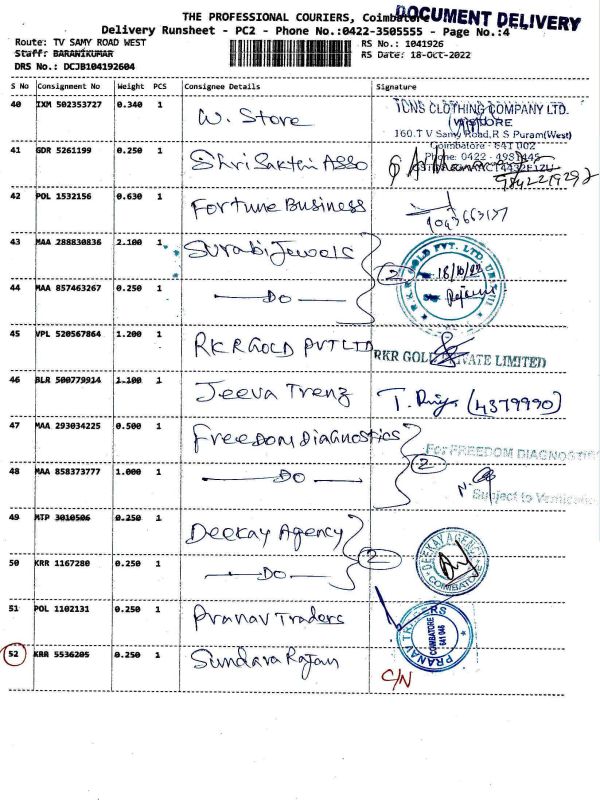 THE PROFESSIONAL COURIERS, Coimbatore
DOCUMENT DELIVERY
Delivery Runsheet - PC2 - Phone No.:0422-3505555 - Page No.:4
Route: TV SAMY ROAD WEST
RS No.: 1041926
Staff: BARANIKUMAR
RS Date: 18-Oct-2022
DRS No.: DCJB104192604
S No Consignment No Weight PCS Consignee Details Signature
40 IXM 502353727 0.340 1 W. Store
TCNS CLOTHING COMPANY LTD.
160.T V Samy Road,R S Puram(West)
Coimbatore - 641 002
Phone: 0422 - 4981445
41 GDR 5261199 0.250 1 Shri Sakthi Asso
9842219292
42 POL 1532156 0.630 1 Fortune Business
43 MAA 288830836 2.100 1 Surabi Jewels
2
R.K.R. GOLD PVT. LTD.
18/10/22
44 MAA 857463267 0.250 1 DO
45 VPL 520567864 1.200 1 RKR GOLD PVT LTD
RKR GOLD PRIVATE LIMITED
46 BLR 500779914 1.100 1 Jeeva Trenz
(4379990)
47 MAA 293034225 0.500 1 Freedom Diagnostics
2
For FREEDOM DIAGNOSTIC
48 MAA 858373777 1.000 1 DO
Subject to Verification
49 MTP 3010506 0.250 1 Deekay Agency
2
DEEKAY AGENCY
COIMBATORE
50 KRR 1167280 0.250 1 DO
51 POL 1102131 0.250 1 Pranav Traders
PRANAV TRADERS
COIMBATORE
641 046
52 KRR 5536205 0.250 1 Sundara Rajan
C/N